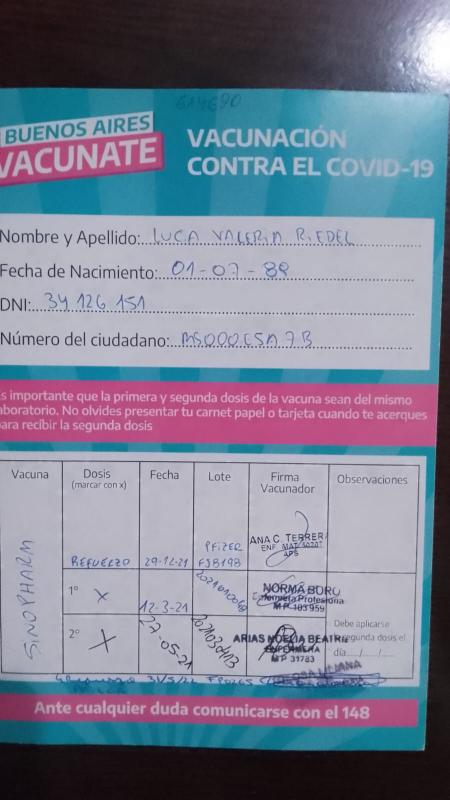 614690
BUENOS AIRES
VACUNATE
VACUNACIÓN
CONTRA EL COVID-19
Nombre y Apellido: LUCA VALERIA RIEDEL
Fecha de Nacimiento: 01-07-88
DNI: 34 126 151
Número del ciudadano:
Es importante que la primera y segunda dosis de la vacuna sean del mismo
laboratorio. No olvides presentar tu carnet papel o tarjeta cuando te acerques
para recibir la segunda dosis
Vacuna Dosis Fecha Lote Firma Observaciones
(marcar con x) Vacunador
SINOPHARM
REFUERZO 29-12-21 PFIZER FJ8198 ANA C. TERRER
ENF. MAT
APS
1° X 12-3-21 NORMA BORU
Enfermera Profesional
M P 103959
2° X 27-05-21 ARIAS NOELIA BEATRIZ
ENFERMERA
M P 31783
Debe aplicarse
segunda dosis el
día..../..../....
Ante cualquier duda comunicarse con el 148